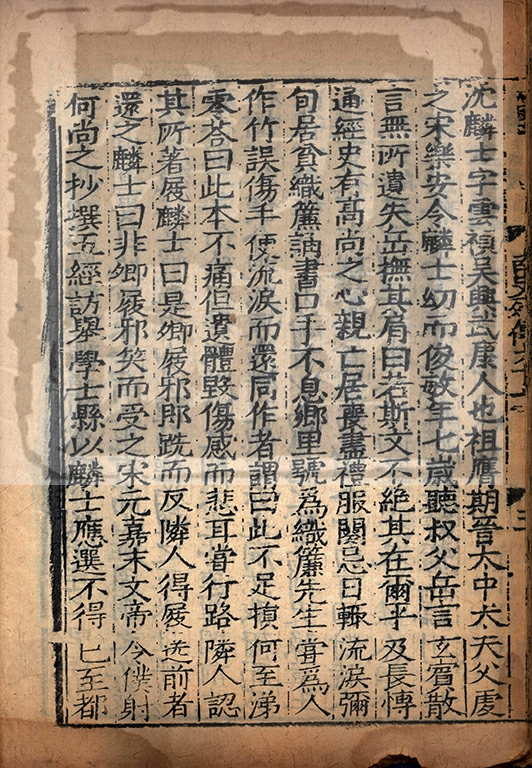 沈麟士字雲禎吳興武康人也祖膺期晉太中大夫父虔
之宋樂安令麟士幼而俊敏年七歲聽叔父岳言玄賓散
言無所遺失岳撫其肩曰若斯文不絕其在爾乎及長博
通經史有高尚之心親亡居喪盡禮服闋忌日輒流淚彌
旬居貧織簾誦書口手不息鄉里號爲織簾先生嘗爲人
作竹誤傷手便流淚而還同作者謂曰此不足損何至涕
零荅曰此本不痛但遺體毀傷感而悲耳嘗行路隣人認
其所著屐麟士曰是卿屐邪即跣而反隣人得屐送前者
還之麟士曰非卿屐邪笑而受之宋元嘉末文帝令僕射
何尚之抄撰五經訪舉學士縣以麟士應選不得已至都